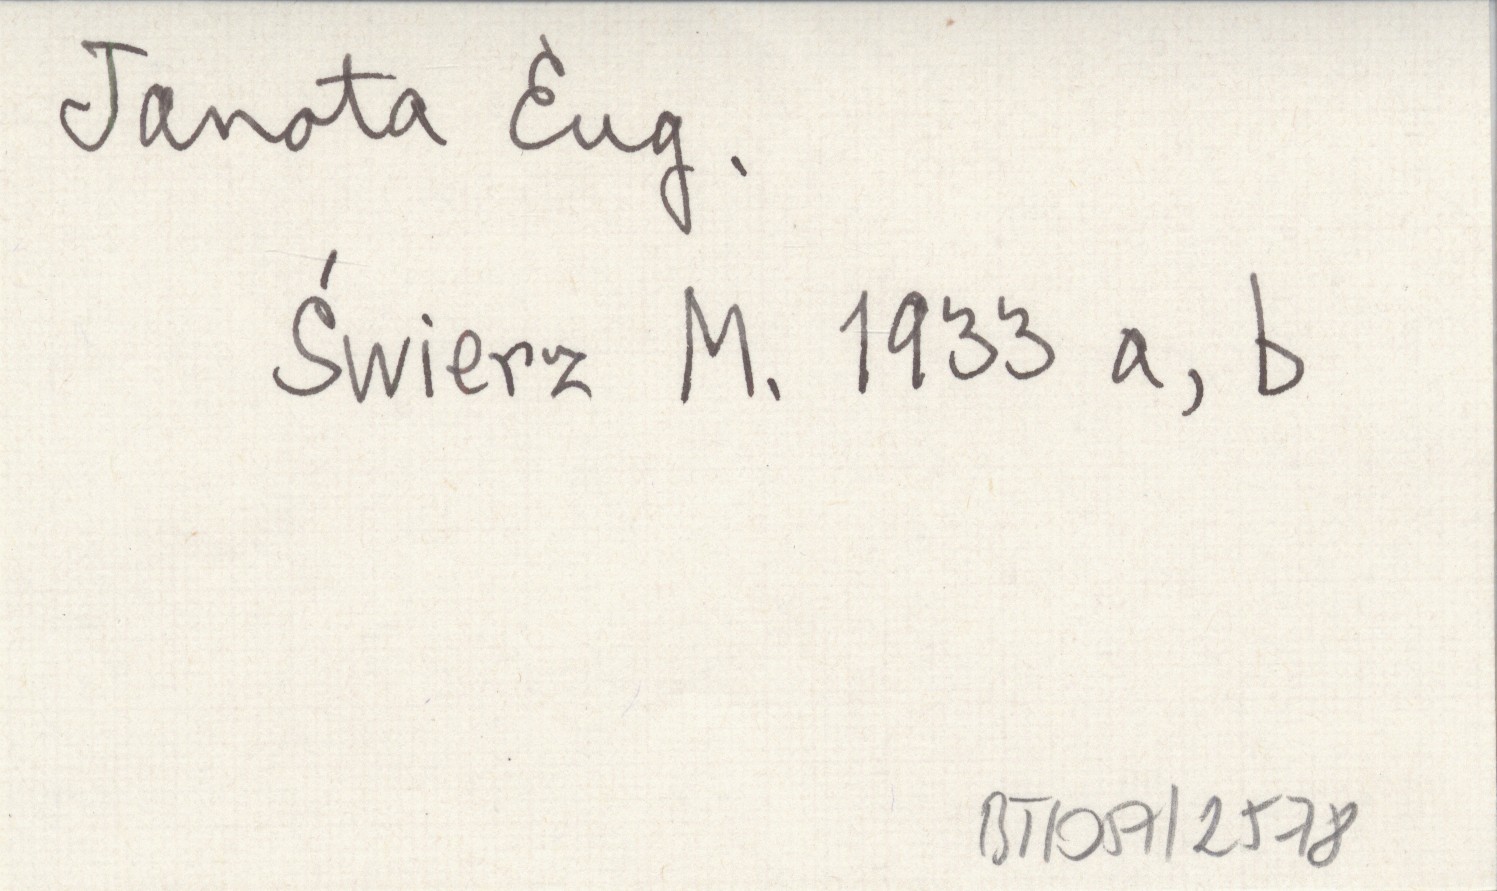 Janota Eug.
Świerz M. 1933 a, b
BT/OA/2578